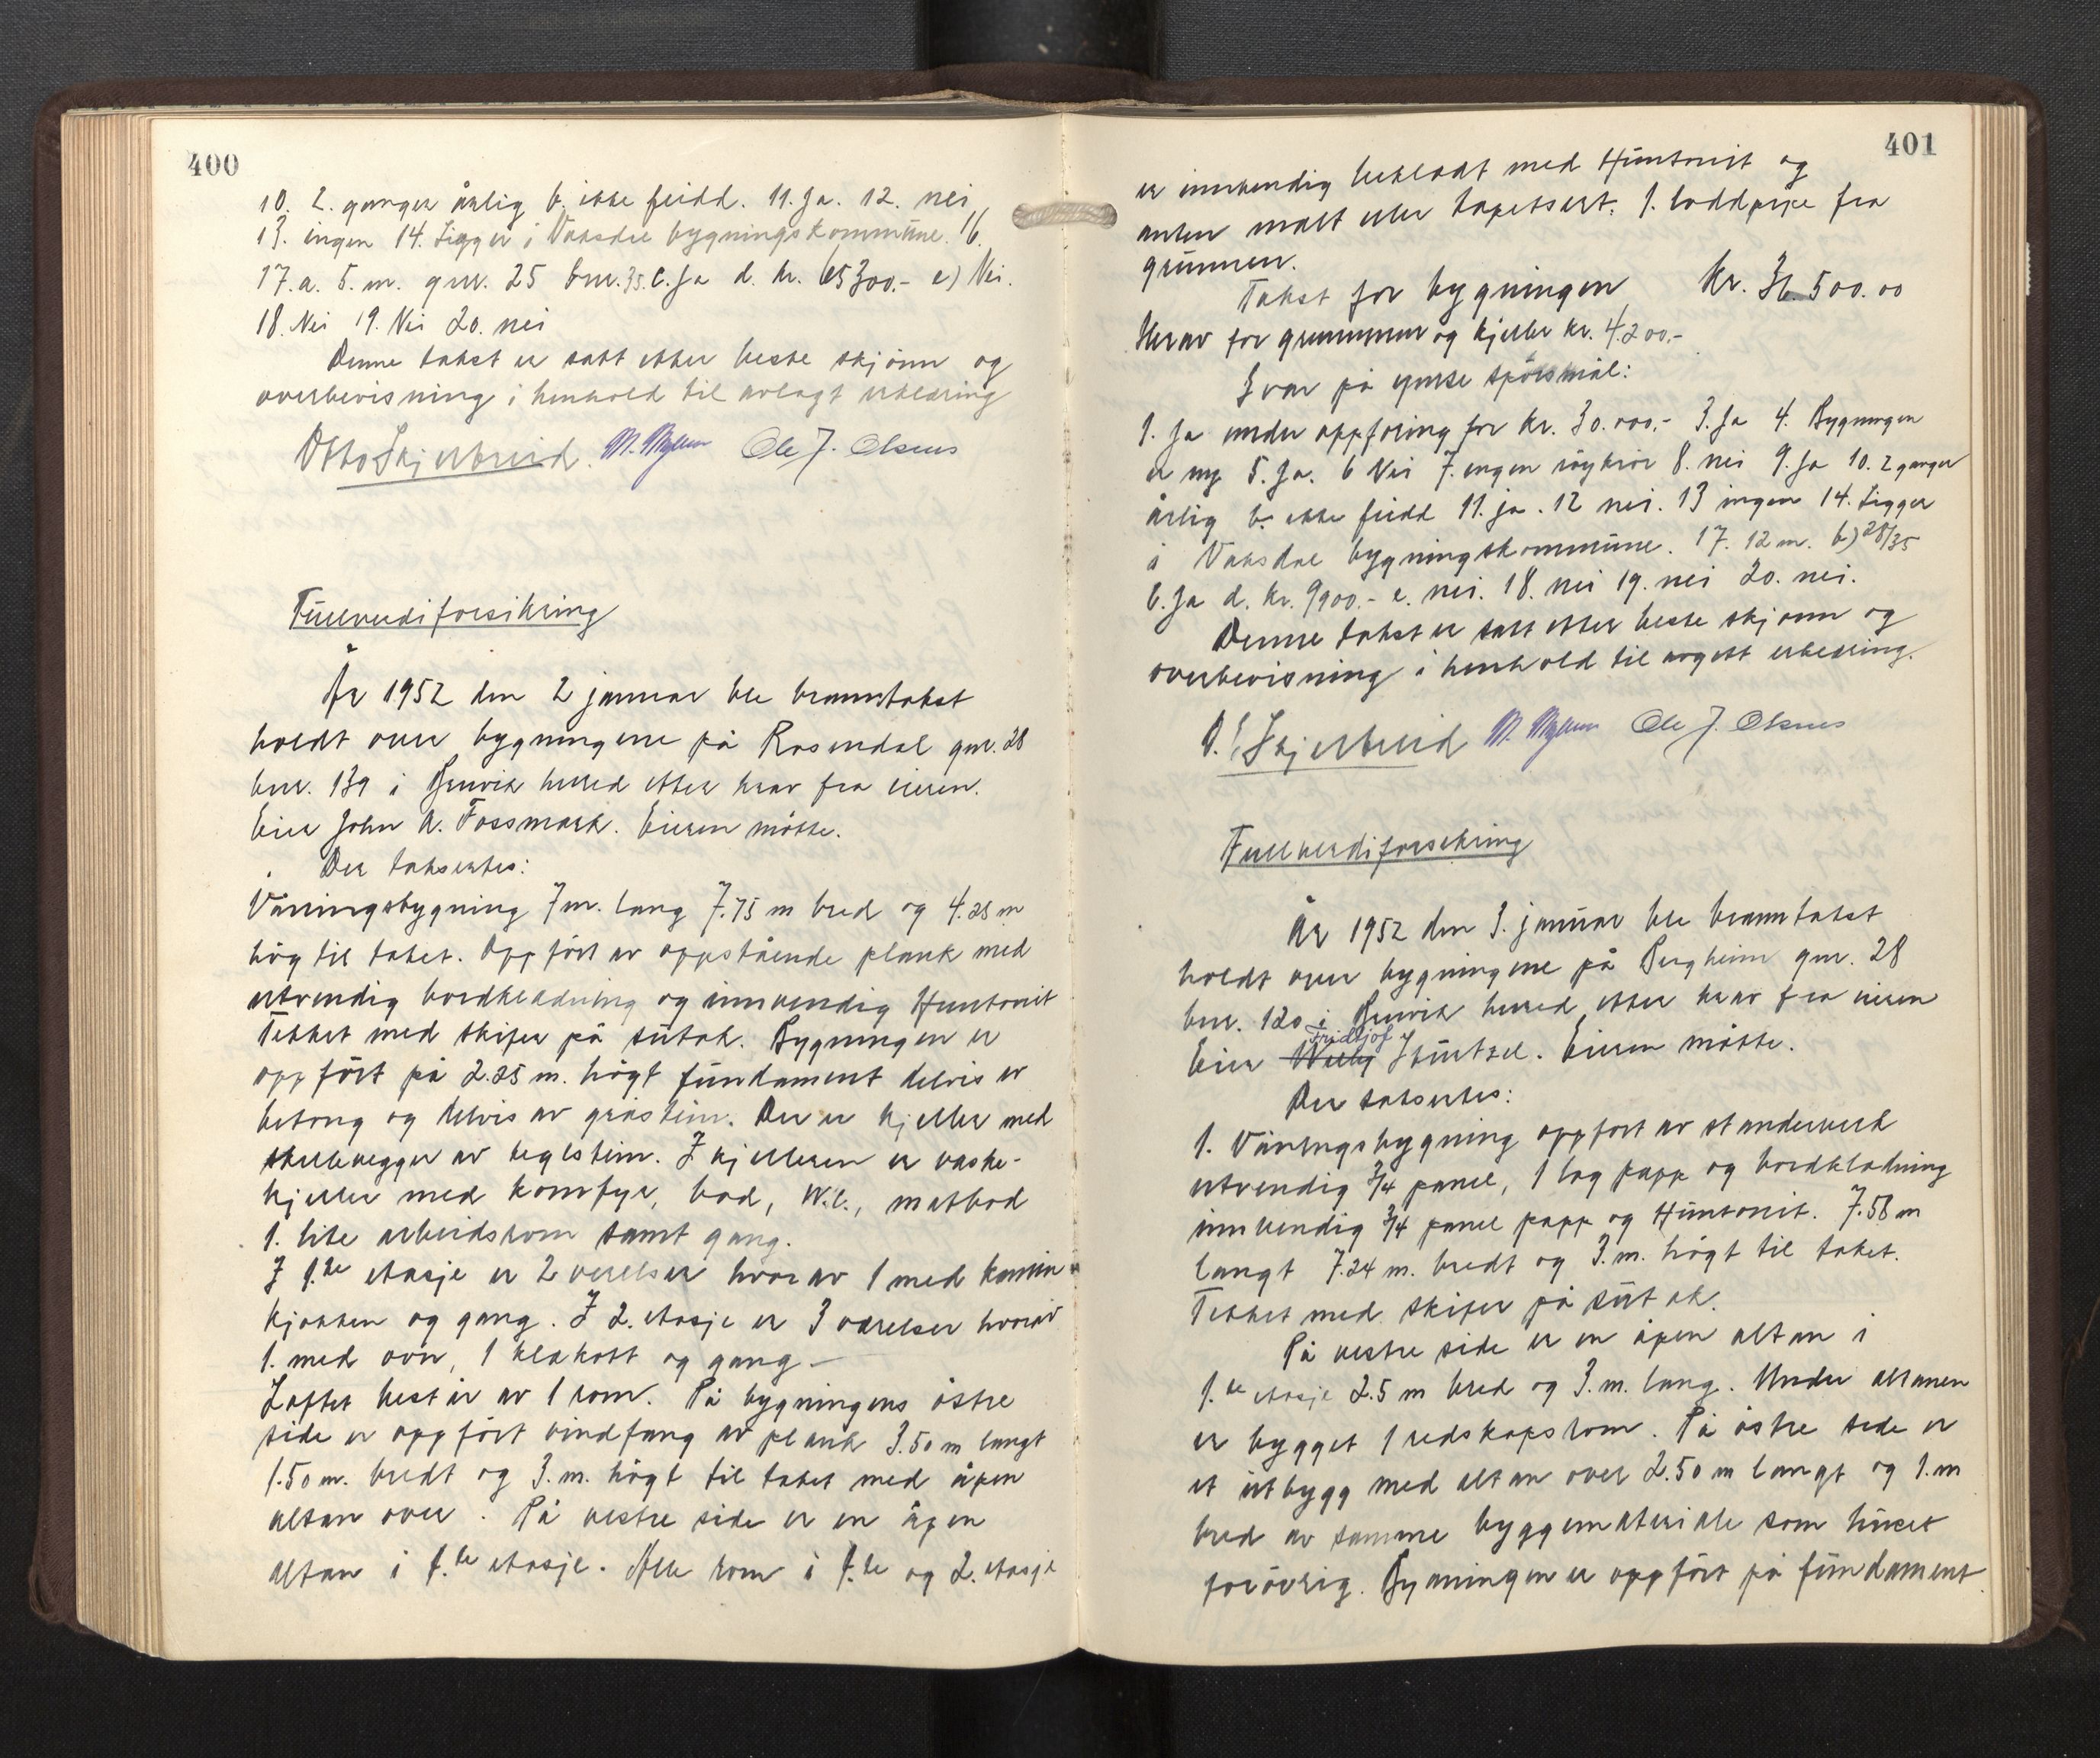 400
10. 2. ganger årlig b. ikke feidd. 11. Ja. 12. nei
13. ingen 14. Ligger i Vaksdal bygningskommune. 16.
17. a. 5. m. gnr. 25 bnr. 35. c. Ja d. kr. 65300.- e) Nei.
18. Nei 19. Nei 20. nei
Denne takst er satt etter beste skjønn og
overbevisning i henhold til avlagt erklæring
Otto Skjerbreid. Ole J. Olsnes
Fullverdiforsikring
År 1952 den 2 januar ble branntakst
holdt over bygningene på Rosendal gnr. 28
bnr. 139 i Bruvik herred etter krav fra eieren.
Eier John A. Fossmark. Eieren møtte.
Der taksertes:
Våningsbygning 7 m. lang 7.75 m bred og 4.25 m
høg til taket. Oppført av oppstående plank med
utvendig bordkledning og innvendig Huntonit
Tekket med skifer på sutak. Bygningen er
oppført på 2.25 m. høgt fundament delvis av
betong og delvis av gråstein. Der er kjeller med
skillevegger av teglstein. I kjelleren er vaske-
kjeller med komfyr, bad, W.C., matbod
1. lite arbeidsrom samt gang.
I 1.ste etasje er 2 værelser hvorav 1 med kamin
kjøkken og gang. I 2. etasje er 3 værelser hvorav
1. med ovn, 1 klekott og gang –
Loftet består av 1 rom. På bygningens østre
side er oppført vindfang av plank 3.50 m langt
1.50 m. bredt og 3. m. høgt til taket med åpen
altan over. På vestre side er en åpen
altan i 1.ste etasje. Alle rom i 1.ste og 2. etasje
401
er innvendig bekledt med Huntonit og
enten malt eller tapetsert. 1. loddpipe fra
grunnen.
Takst for bygningen kr. 36.500.00
Herav for grunnmur og kjeller kr. 4200.-
Svar på ymse spørsmål:
1. Ja under oppføring for kr. 30.000.- 3. Ja 4. Bygningen
er ny 5. Ja. 6 Nei 7. ingen røykrør 8. nei 9. Ja 10. 2 ganger
årlig b. ikke feidd 11. ja. 12 nei. 13 ingen 14. Ligger
i Vaksdal bygningskommune. 17. 12 m. b) 28/35
c. Ja d. kr. 9900.- e. nei. 18. nei 19. nei 20. nei.
Denne takst er satt etter beste skjønn og
overbevisning i henhold til avgitt erklæring.
O. Skjerbreid Ole J. Olsnes
Fullverdiforsikring
År 1952 den 3. januar ble branntakst
holdt over bygningene på Bergheim gnr. 28
bnr. 120 i Bruvik herred etter krav fra eieren
Fridtjof
Eier Willy Stürtzel. Eieren møtte.
Der taksertes:
1. Våningsbygning oppført av standerverk
utvendig 3/4 panel, 1 lag papp og bordkledning
innvendig 3/4 panel papp og Huntonit. 7.58 m
langt 7.24 m. bredt og 3. m. høgt til taket.
Tekket med skifer på sutak.
På vestre side er en åpen altan i
1.ste etasje 2.5 m bred og 3. m. lang. Under altanen
er bygget 1 redskapsrom. På østre side er
et utbygg med altan over 2.50 m langt og 1. m
bred av samme byggemateriale som huset
forøvrig. Bygningen er oppført på fundament